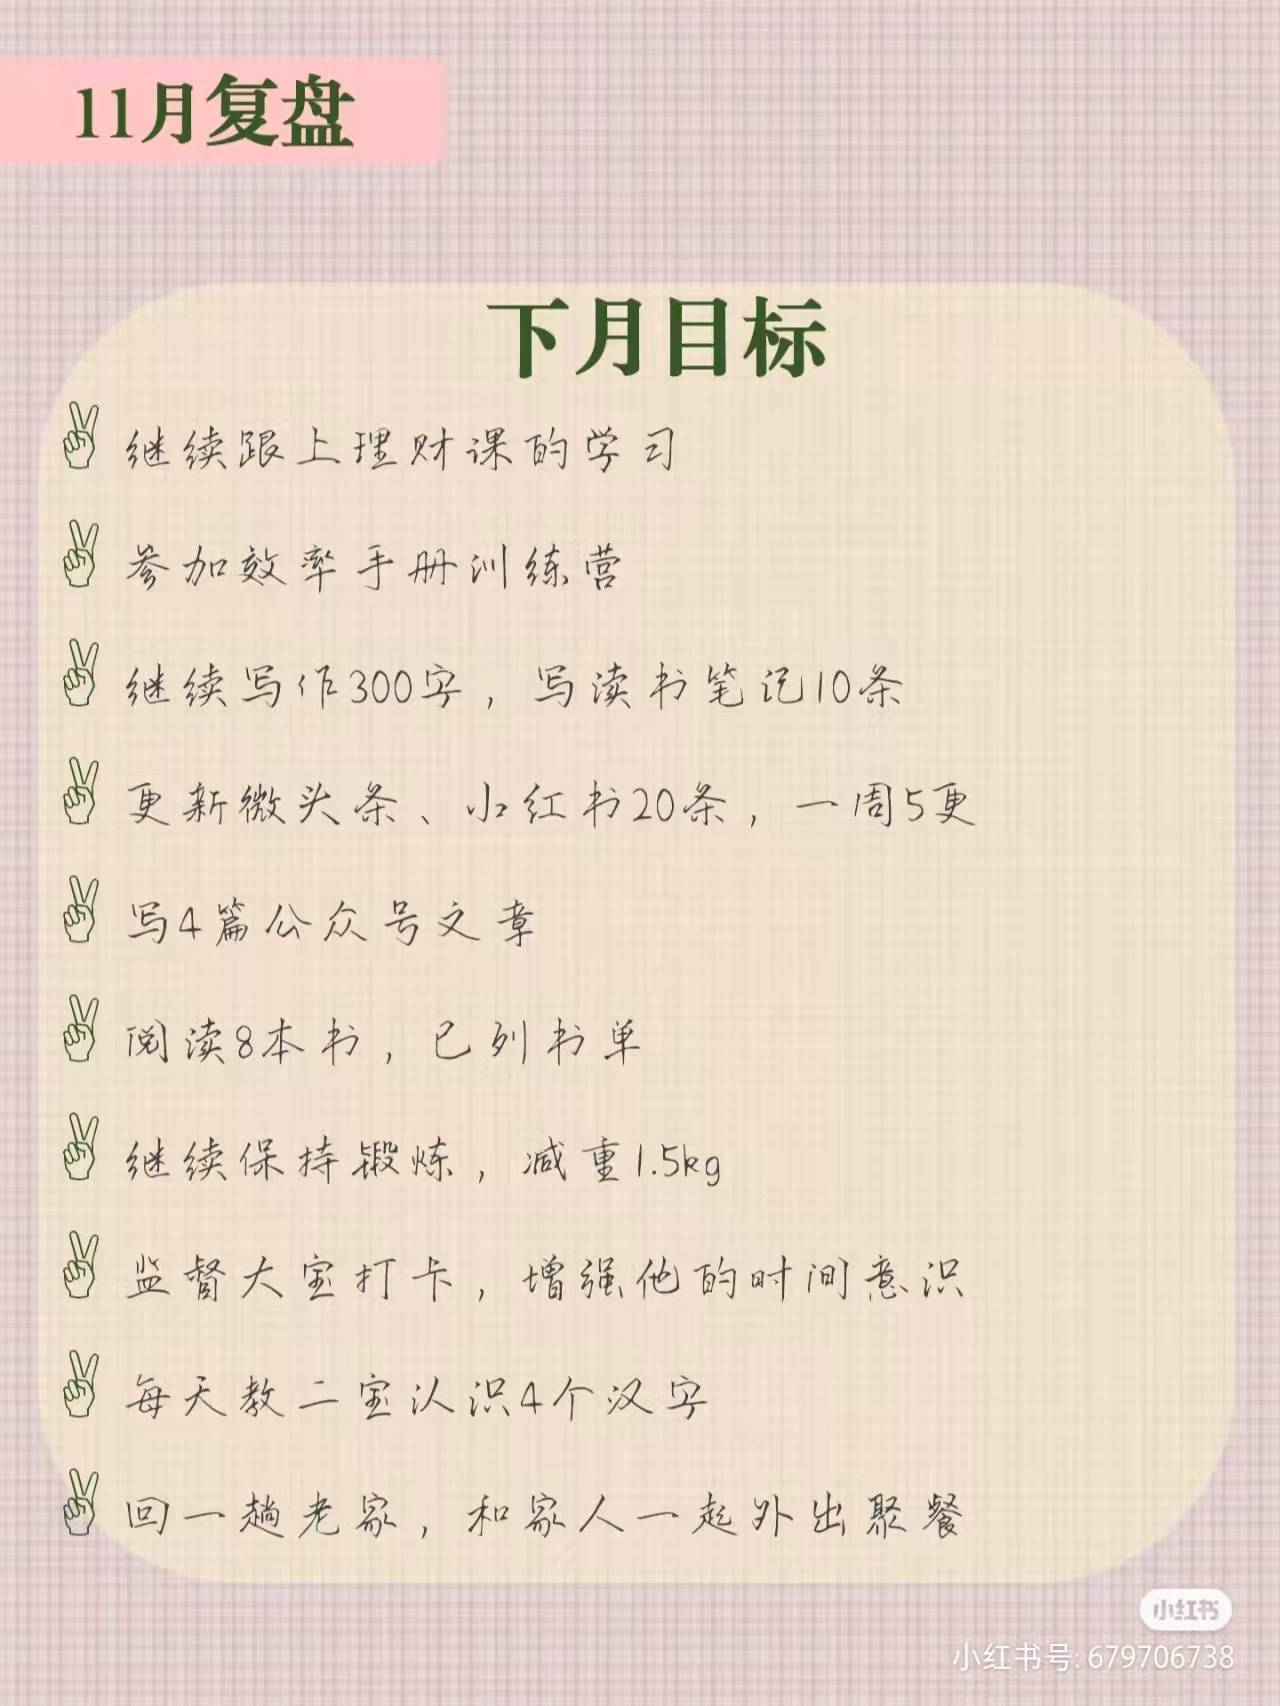 11月复盘
下月目标
继续跟上理财课的学习
参加效率手册训练营
继续写作300字，写读书笔记10条
更新微头条、小红书20条，一周5更
写4篇公众号文章
阅读8本书，已列书单
继续保持锻炼，减重1.5kg
监督大宝打卡，增强他的时间意识
每天教二宝认识4个汉字
回一趟老家，和家人一起外出聚餐
小红书
小红书号: 679706738